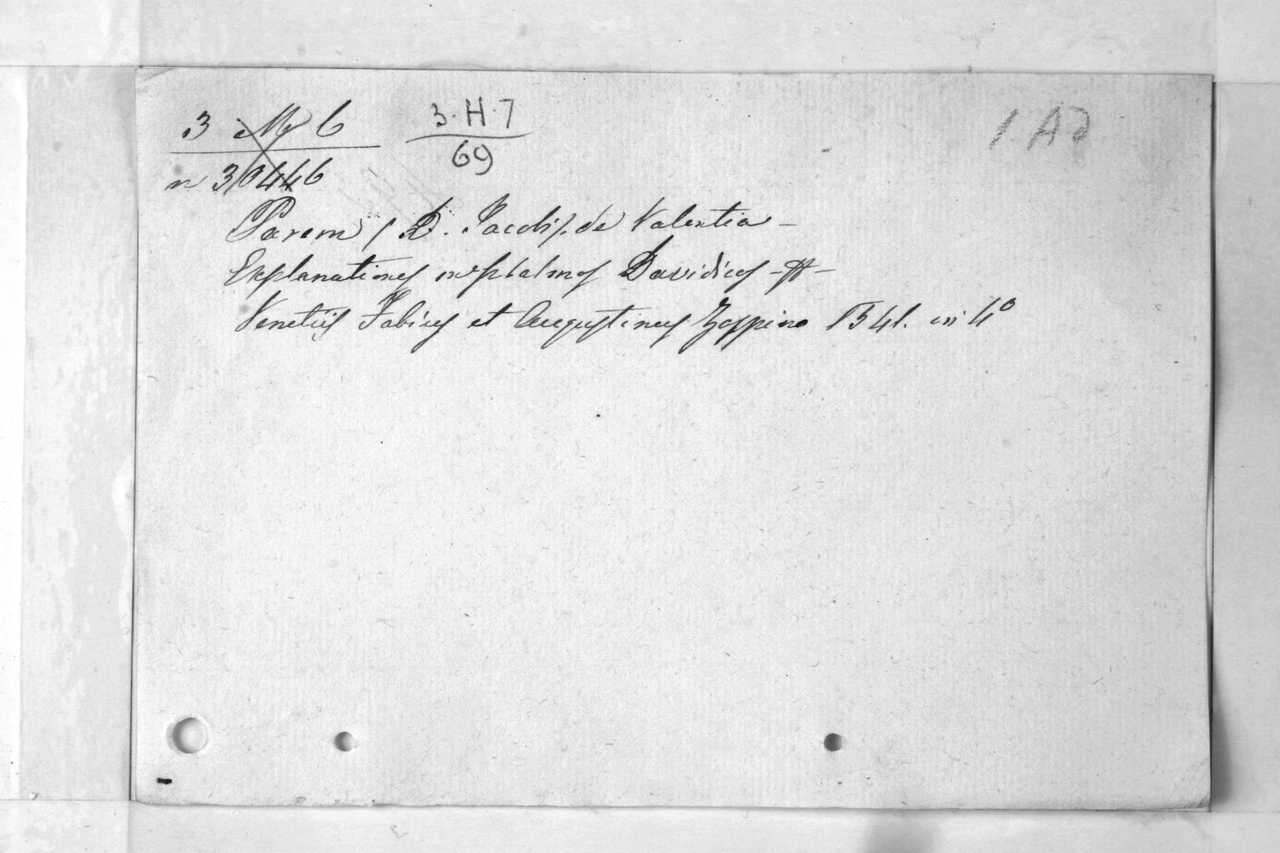 3 M 6 3·H·7 1 Ad
n 30446 69
Parem / D. Jacobi/. de Valentia -
Explanationes in psalmos Davidicos -#-
Venetiis Fabius et Augustinus Zoppino 1541. in 4º